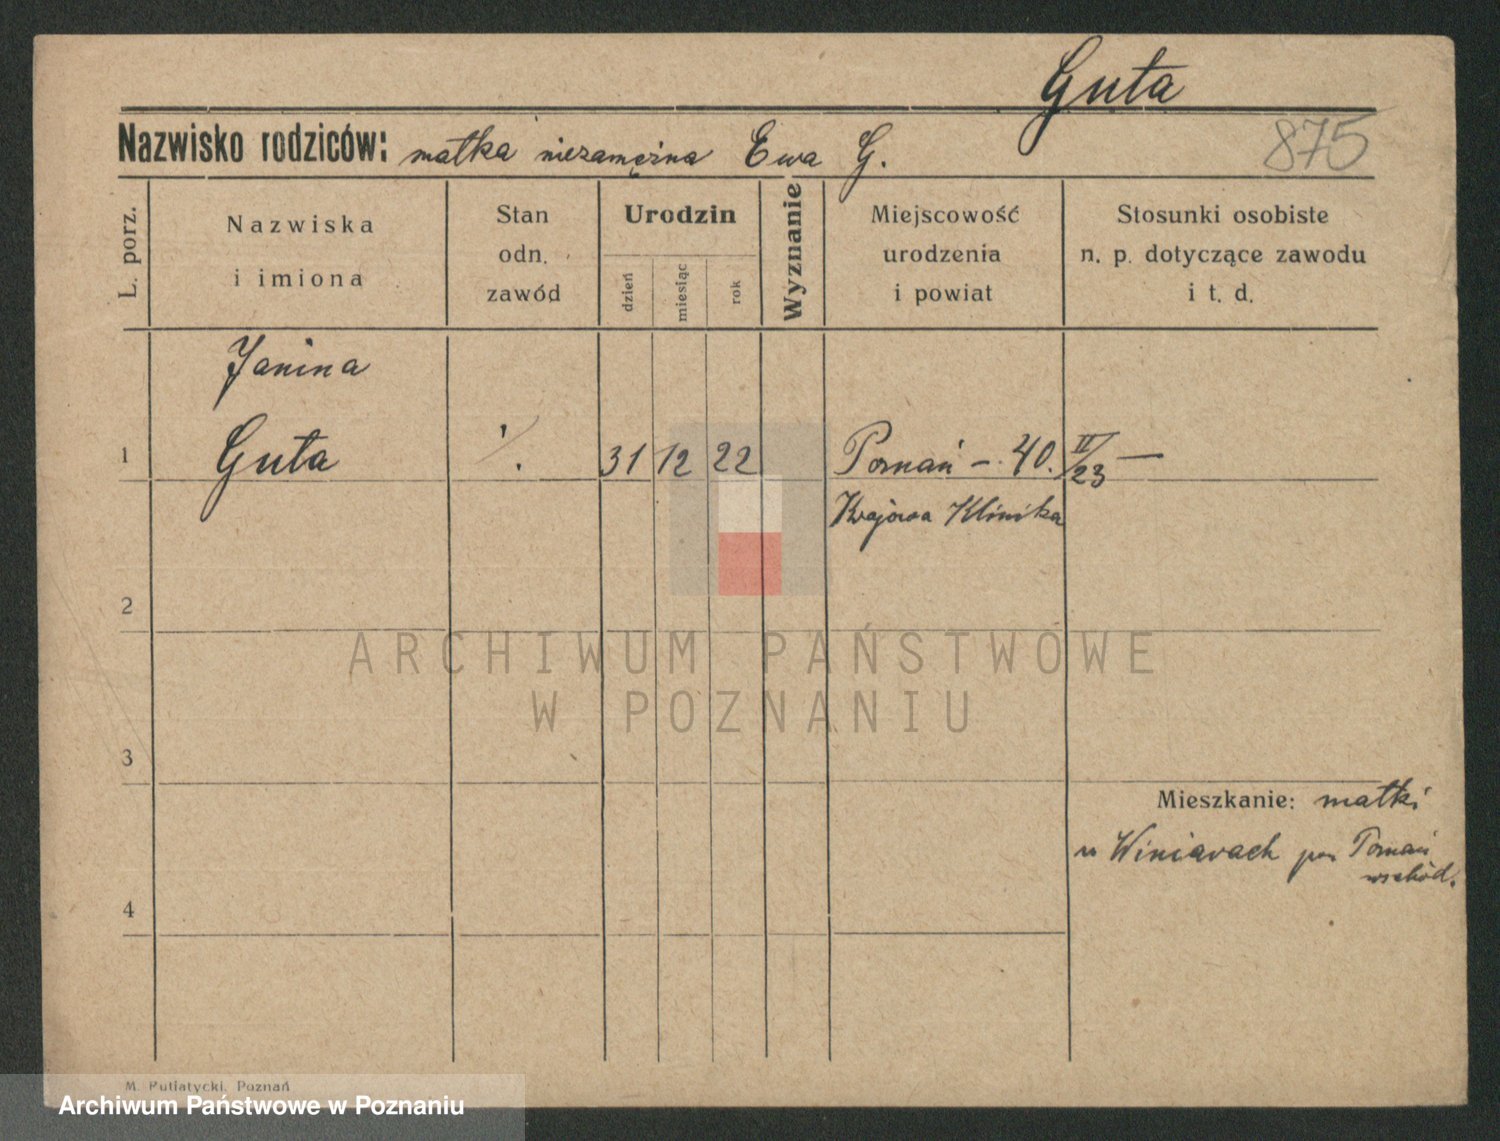 Guta
875
Nazwisko rodziców: matka niezamężna Ewa G.
L. porz.
Nazwiska
i imiona
Stan
odn.
zawód
Urodzin
dzień
miesiąc
rok
Wyznanie
Miejscowość
urodzenia
i powiat
Stosunki osobiste
n. p. dotyczące zawodu
i t. d.
Janina
1 Guta ./. 31 12 22 Poznań - 40. II/23 —
Krajowa Klinika
2
ARCHIWUM PAŃSTWOWE
W POZNANIU
3
Mieszkanie: matki
w Winiarach pow Poznań
wschód.
4
M. Putiatycki, Poznań
Archiwum Państwowe w Poznaniu